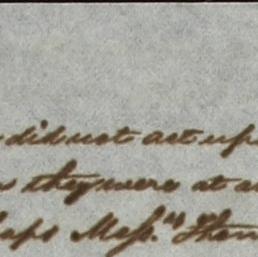 did not act up
they were at a
Mess.rs